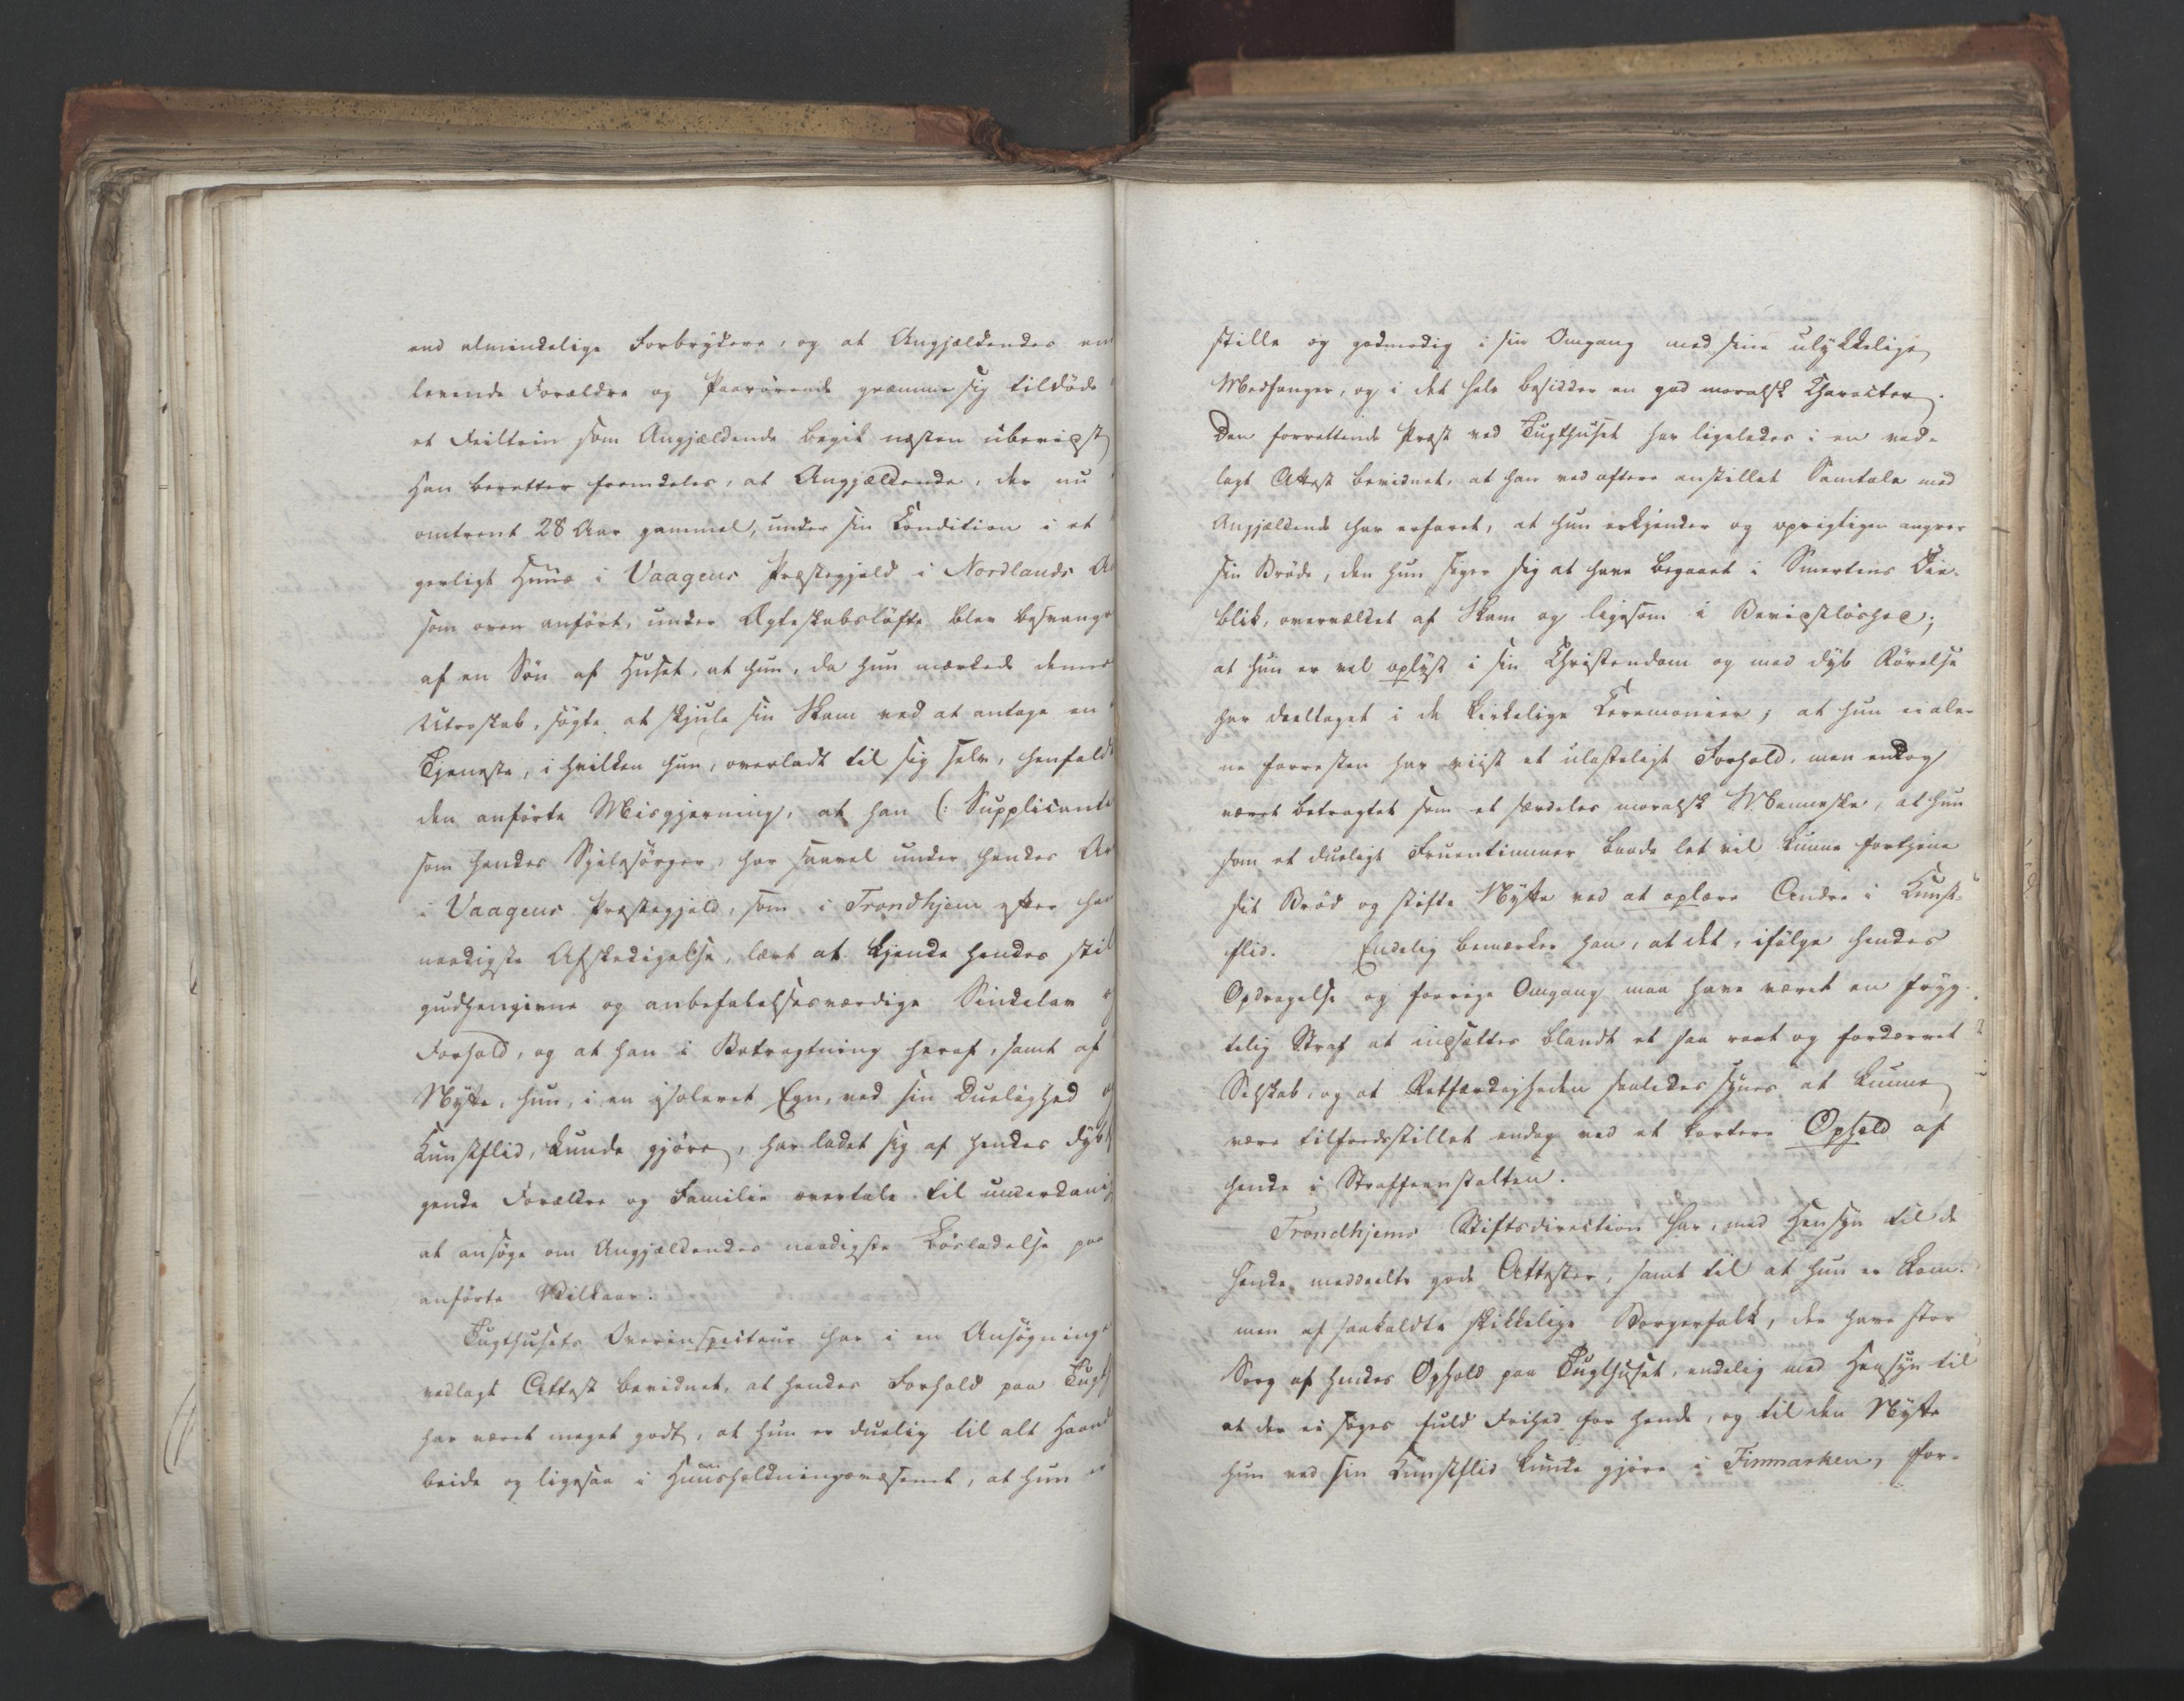 end almindelige Forbrydere, og at Angjældendes en
levende Forældre og Paarørende græmme sig tildöde
et Feiltrin som Angjældende begik næsten ubevidst
Han beretter fremdeles, at Angjældende, der nu
omtrent 28 Aar gammel, under sin Condition i et
gerligt Huus i Vaagens Præstegjeld i Nordlands A
som oven anfört, under Ægteskabslöfte blev besvangr
af en Sön af Huset, at hun, da hun mærkede dennes
Utroskab, sögte at skjule sin Skam ved at antage en
Tjeneste, i hvilken hun, overladt til sig selv, henfaldt
den anförte Misgjerning, at han (: Supplicante
som hendes Sjelesörger, har saavel under hendes Ar
i Vaagens Præstegjeld, som i Trondhjem efter han
naadigste Afskedigelse, lært at kjende hendes stil
gudhengivne og anbefalelsesværdige Sindelav o
Forhold, og at han i Betragtning heraf, samt af
Nytte, hun, i en isoleret Egn, ved sin Duelighed o
Kunstflid, kunde gjöre, har ladet sig af hendes dybt
gende Forældre og Familie overtale til underdanig
at ansöge om Angjældendes naadigste Lösladelse paa
anförte Vilkaar.
Tugthusets Overinspecteur har i en Ansögninge
vedlagt Attest bevidnet, at hendes Forhold paa Tugth
har været meget godt, at hun er duelig til alt Haand
beide og ligesaa i Huusholdningsvæsenet, at hun er
stille og godmodig i sin Omgang med sine ulykkelige
Medfanger, og i det hele besidder en god moralsk Character.
Den forrettende Præst ved Tugthuset har ligeledes i en ved-
lagt Attest bevidnet, at han ved oftere anstillet Samtale med
Angjældende har erfaret, at hun erkjender og oprigtigen angrer
sin Bröde, den hun siger sig at have begaaet i Smertens Öie-
blik, overvældet af Skam og ligesom i Bevidstlöshed;
at hun er vel oplyst i sin Christendom og med dyb Rörelse
har deeltaget i de kirkelige Ceremonier; at hun ei ale-
ne forresten har viist et ulasteligt Forhold, men endog
været betragtet som et særdeles moralsk Menneske, at hun
som et dueligt Fruentimmer baade let vil kunne fortjene
sit Bröd og stifte Nytte ved at oplære Andre i Kunst-
flid. Endelig bemærker han, at det, ifölge hendes
Opdragelse og forrige Omgang maa have været en fryg-
telig Straf at indsættes blandt et saa raat og fordærvet
Selskab, og at Retfærdigheden saaledes synes at kunne
være tilfredsstillet endog ved et kortere Ophold af
hende i Straffeanstalten.
Trondhjems Stiftsdirection har, med Hensyn til de
hende meddeelte gode Attester, samt til at hun er kom-
men af saakaldte skikkelige Borgerfolk, der have stor
Sorg af hendes Ophold paa Tugthuset, endelig med Hensyn til
at der ei söges fuld Frihed for hende, og til den Nytte
hun ved sin Kunstflid kunde gjöre i Finmarken, for-